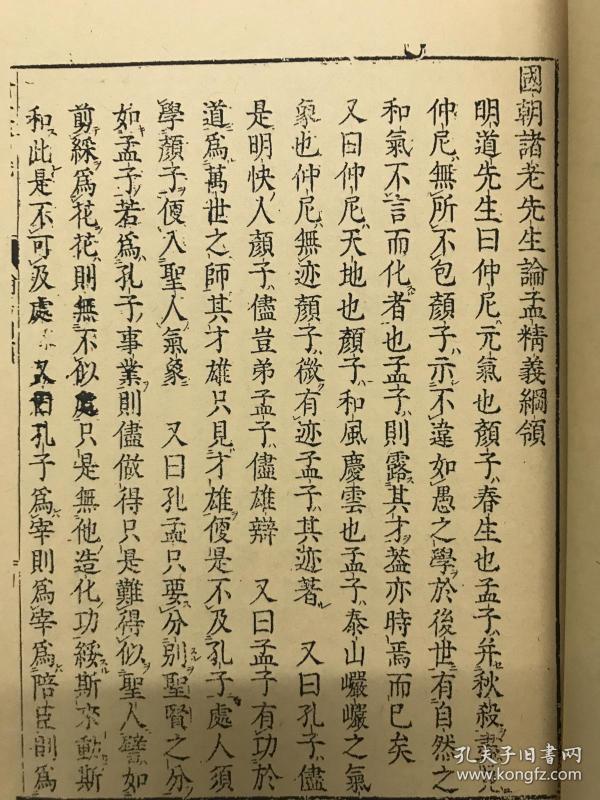 國朝諸老先生論孟精義綱領
明道先生曰仲尼元氣也顏子春生也孟子并秋殺盡見
仲尼無所不包顏子示不違如愚之學於後世有自然之
和氣不言而化者也孟子則露其才蓋亦時焉而已矣
又曰仲尼天地也顏子和風慶雲也孟子泰山巖巖之氣
象也仲尼無迹顏子微有迹孟子其迹著 又曰孔子儘
是明快人顏子儘豈弟孟子儘雄辯 又曰孟子有功於
道爲萬世之師其才雄只見才雄便是不及孔子處人須
學顏子便入聖人氣象 又曰孔孟只要分別聖賢之分
如孟子若爲孔子事業則儘做得只是難得似聖人譬如
剪綵爲花花則無不似處只是無他造化功綏斯來動斯
和此是不可及處 又曰孔子爲宰則爲宰爲陪臣則爲
孔夫子旧书网
www.kongfz.com